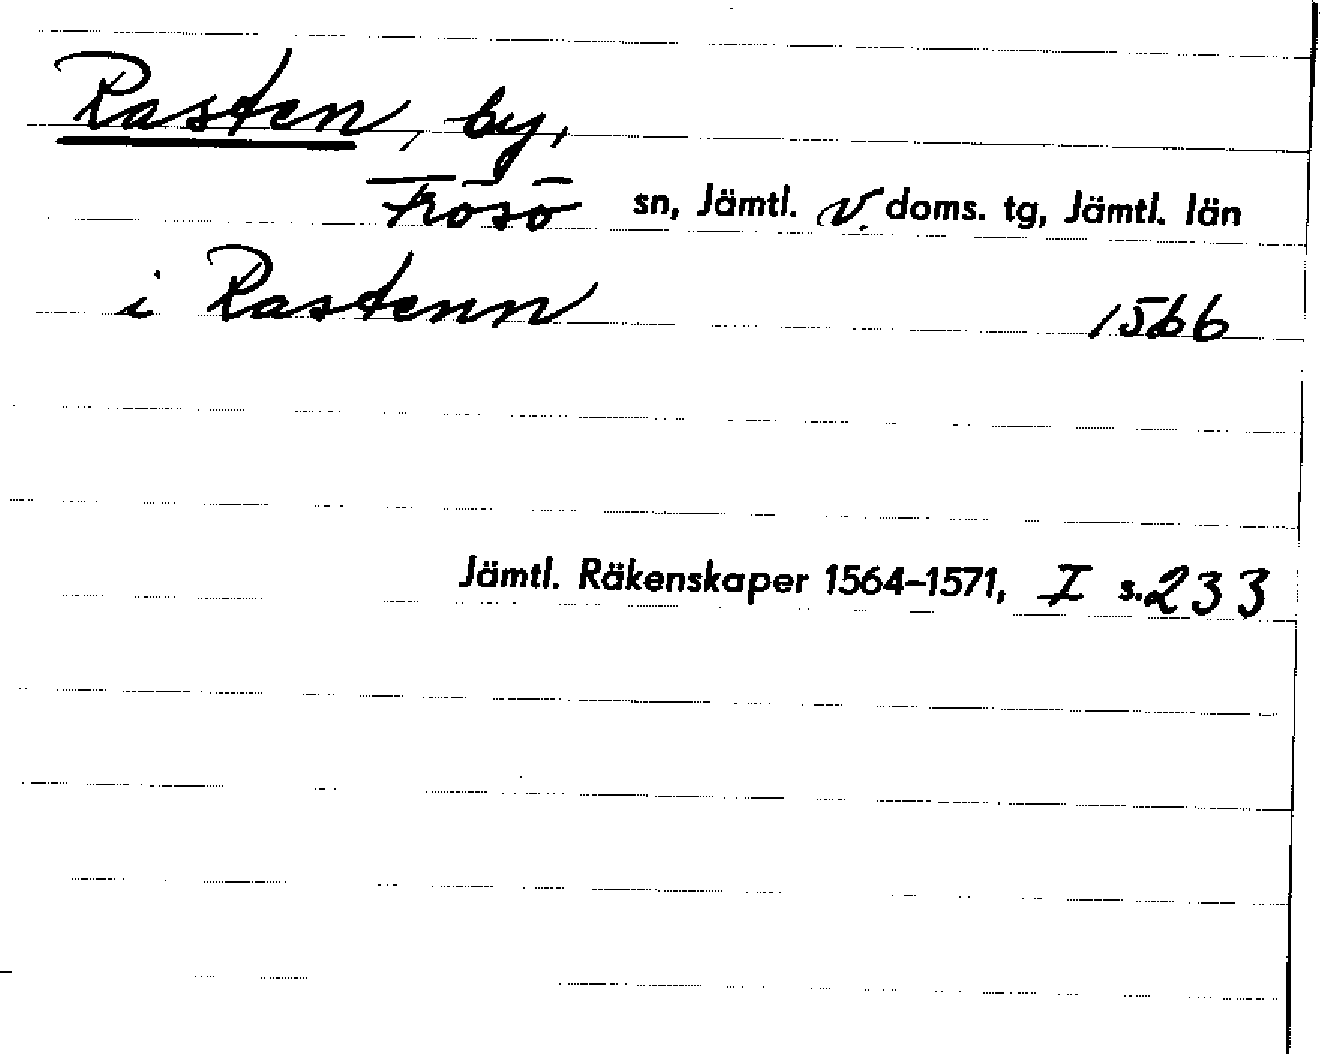 Rasten, by,
Frösö sn, Jämtl. V. doms. tg, Jämtl. län
i Rastenn 1566
Jämtl. Räkenskaper 1564–1571, I s. 233